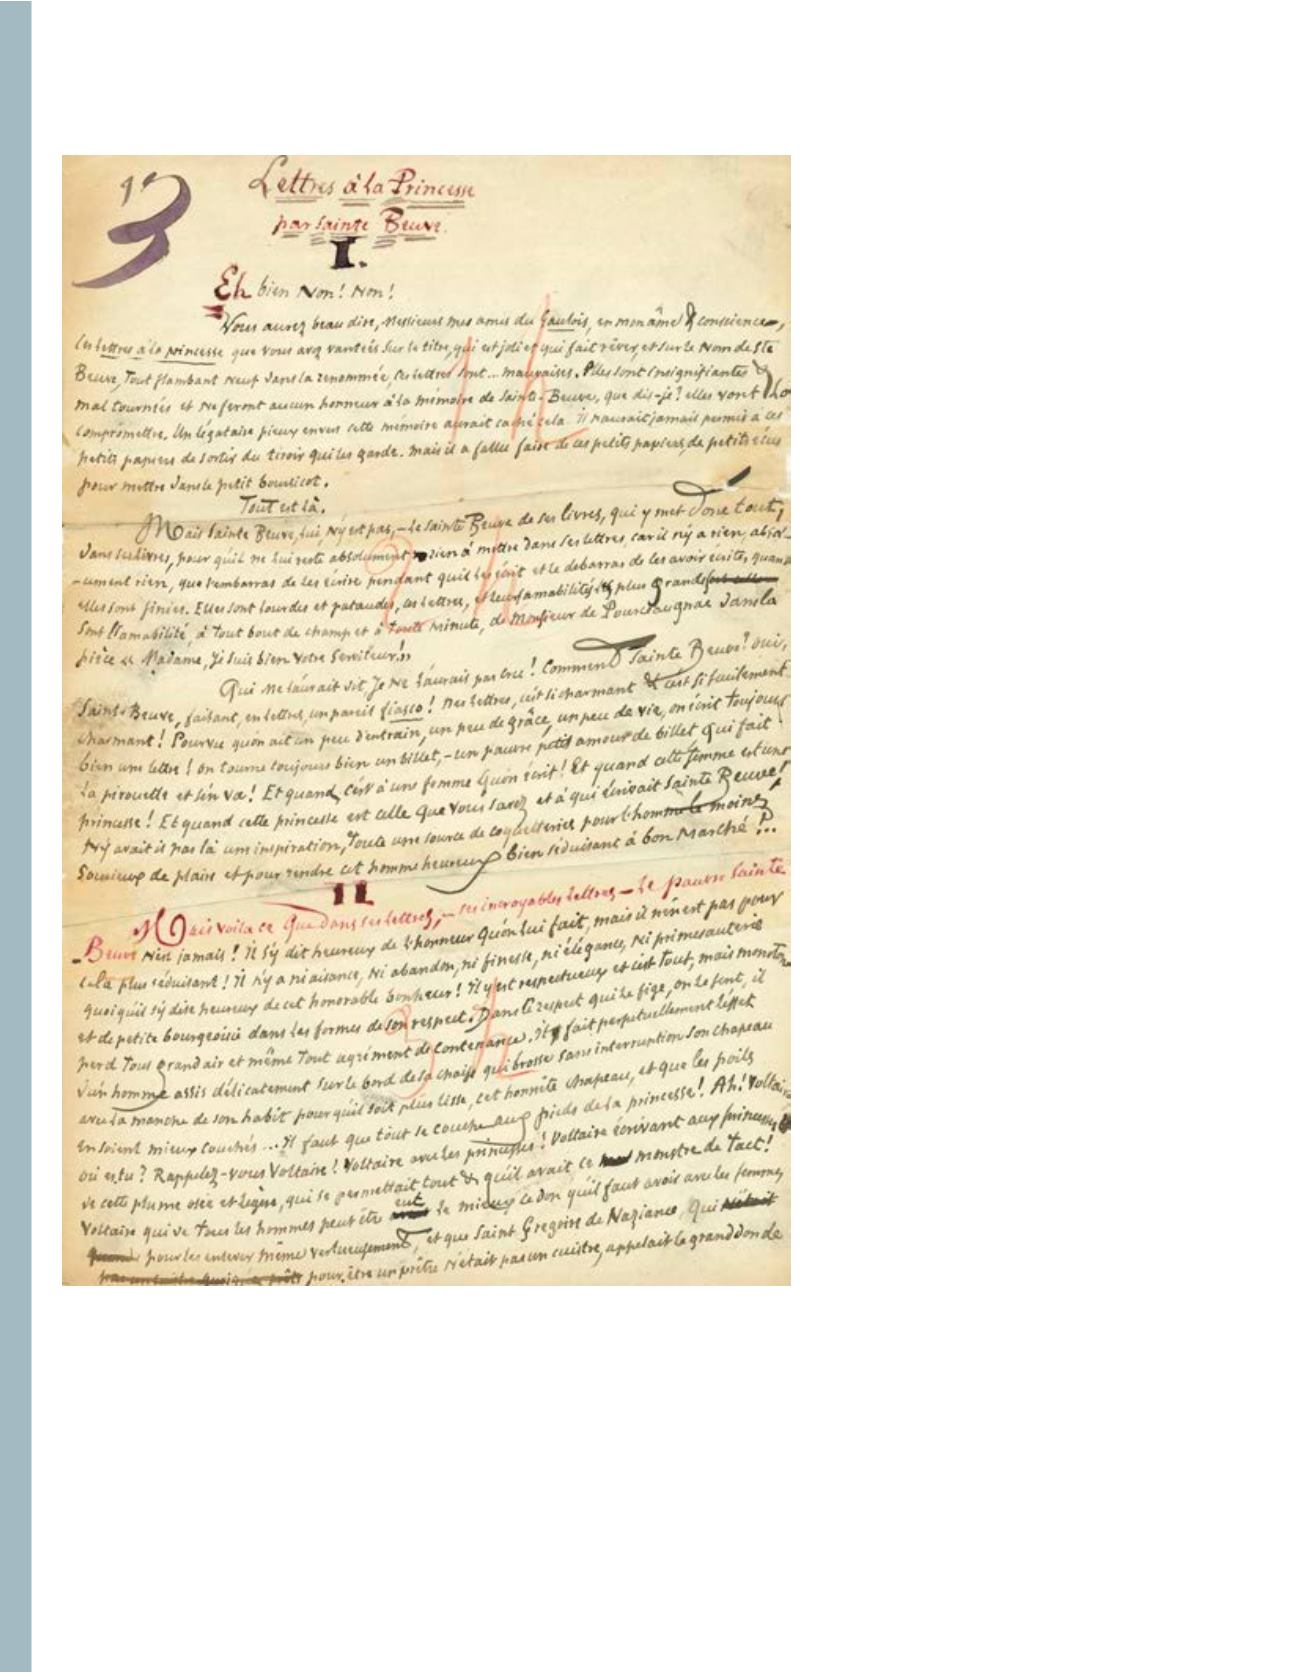 13
Lettres à la Princesse
par Sainte Beuve.
I.
Eh bien Non! Non!
Vous aurez beau dire, Messieurs mes amis du Gaulois, en mon âme & conscience,
les lettres à la princesse que vous avez vantées sur le titre, qui est joli et qui fait rêver, et sur le Nom de Ste
Beuve, Tout flambant neuf dans la renommée, ces lettres sont... mauvaises. Elles sont insignifiantes &
mal tournées et ne feront aucun honneur à la mémoire de Sainte-Beuve, que dis-je? elles vont la
compromettre. Un légataire pieux envers cette mémoire aurait caché cela. Il n'aurait jamais permis à ces
petits papiers de sortir du tiroir qui les garde. Mais il a fallu faire de ces petits papiers, de petits écus
pour mettre dans le petit boursicot.
Tout est là.
Mais Sainte Beuve, lui, n'y est pas, – le Sainte Beuve de ses livres, qui y met donc tout,
dans ses livres, pour qu'il ne lui reste absolument rien à mettre dans ses lettres, car il n'y a rien, absol-
-ument rien, que l'embarras de les écrire pendant qu'il les écrit et le débarras de les avoir écrites, quand
elles sont finies. Elles sont lourdes et pataudes, ces lettres, et leurs amabilités les plus grandes
sont l'amabilité, à tout bout de champ et à toute minute, de Monsieur de Pourceaugnac dans la
pièce « Madame, je suis bien votre serviteur! »
Qui me l'aurait dit, je ne l'aurais pas cru! Comment Sainte Beuve? oui,
Sainte-Beuve, faisant, en lettres, un pareil fiasco! Des lettres, c'est si charmant & c'est si facilement
charmant! Pourvu qu'on ait un peu d'entrain, un peu de grâce, un peu de vie, on écrit toujours
bien une lettre! on tourne toujours bien un billet, – un pauvre petit amour de billet qui fait
la pirouette et s'en va! Et quand, c'est à une femme qu'on écrit! Et quand cette femme est une
princesse! Et quand cette princesse est celle que vous savez et à qui écrivait Sainte Beuve!
N'y avait-il pas là une inspiration, Toute une source de coquetteries pour l'homme le moins
soucieux de plaire et pour rendre cet homme heureux bien séduisant à bon marché?..
II
Mais voilà ce que dans ses lettres, – ses incroyables lettres – le pauvre Sainte
-Beuve n'est jamais! Il s'y dit heureux de l'honneur qu'on lui fait, mais il n'en est pas pour
cela plus séduisant! Il n'y a ni aisance, ni abandon, ni finesse, ni élégance, ni primesauterie
quoiqu'il s'y dise heureux de cet honorable bonheur! Il y est respectueux et c'est tout, mais monotone
et de petite bourgeoisie dans les formes de son respect. Dans le respect qui le fige, on le sent, il
perd tous grand air et même tout agrément de contenance. Il y fait perpétuellement l'effet
d'un homme assis délicatement sur le bord de sa chaise qui brosse sans interruption son chapeau
avec la manche de son habit pour qu'il soit plus lisse, cet honnête chapeau, et que les poils
en soient mieux couchés... Il faut que tout se couche aux pieds de la princesse! Ah! Voltaire
où es-tu? Rappelez-vous Voltaire! Voltaire avec les princesses! Voltaire écrivant aux princesses
de cette plume osée et légère, qui se permettait tout & qu'il avait ce monstre de Tact!
Voltaire qui de tous les hommes peut être eut le mieux ce don qu'il faut avoir avec les femmes
pour les enlever même vertueusement, et que Saint Grégoire de Nazianze, qui
pour être un prêtre n'était pas un cuistre, appelait le grand don de